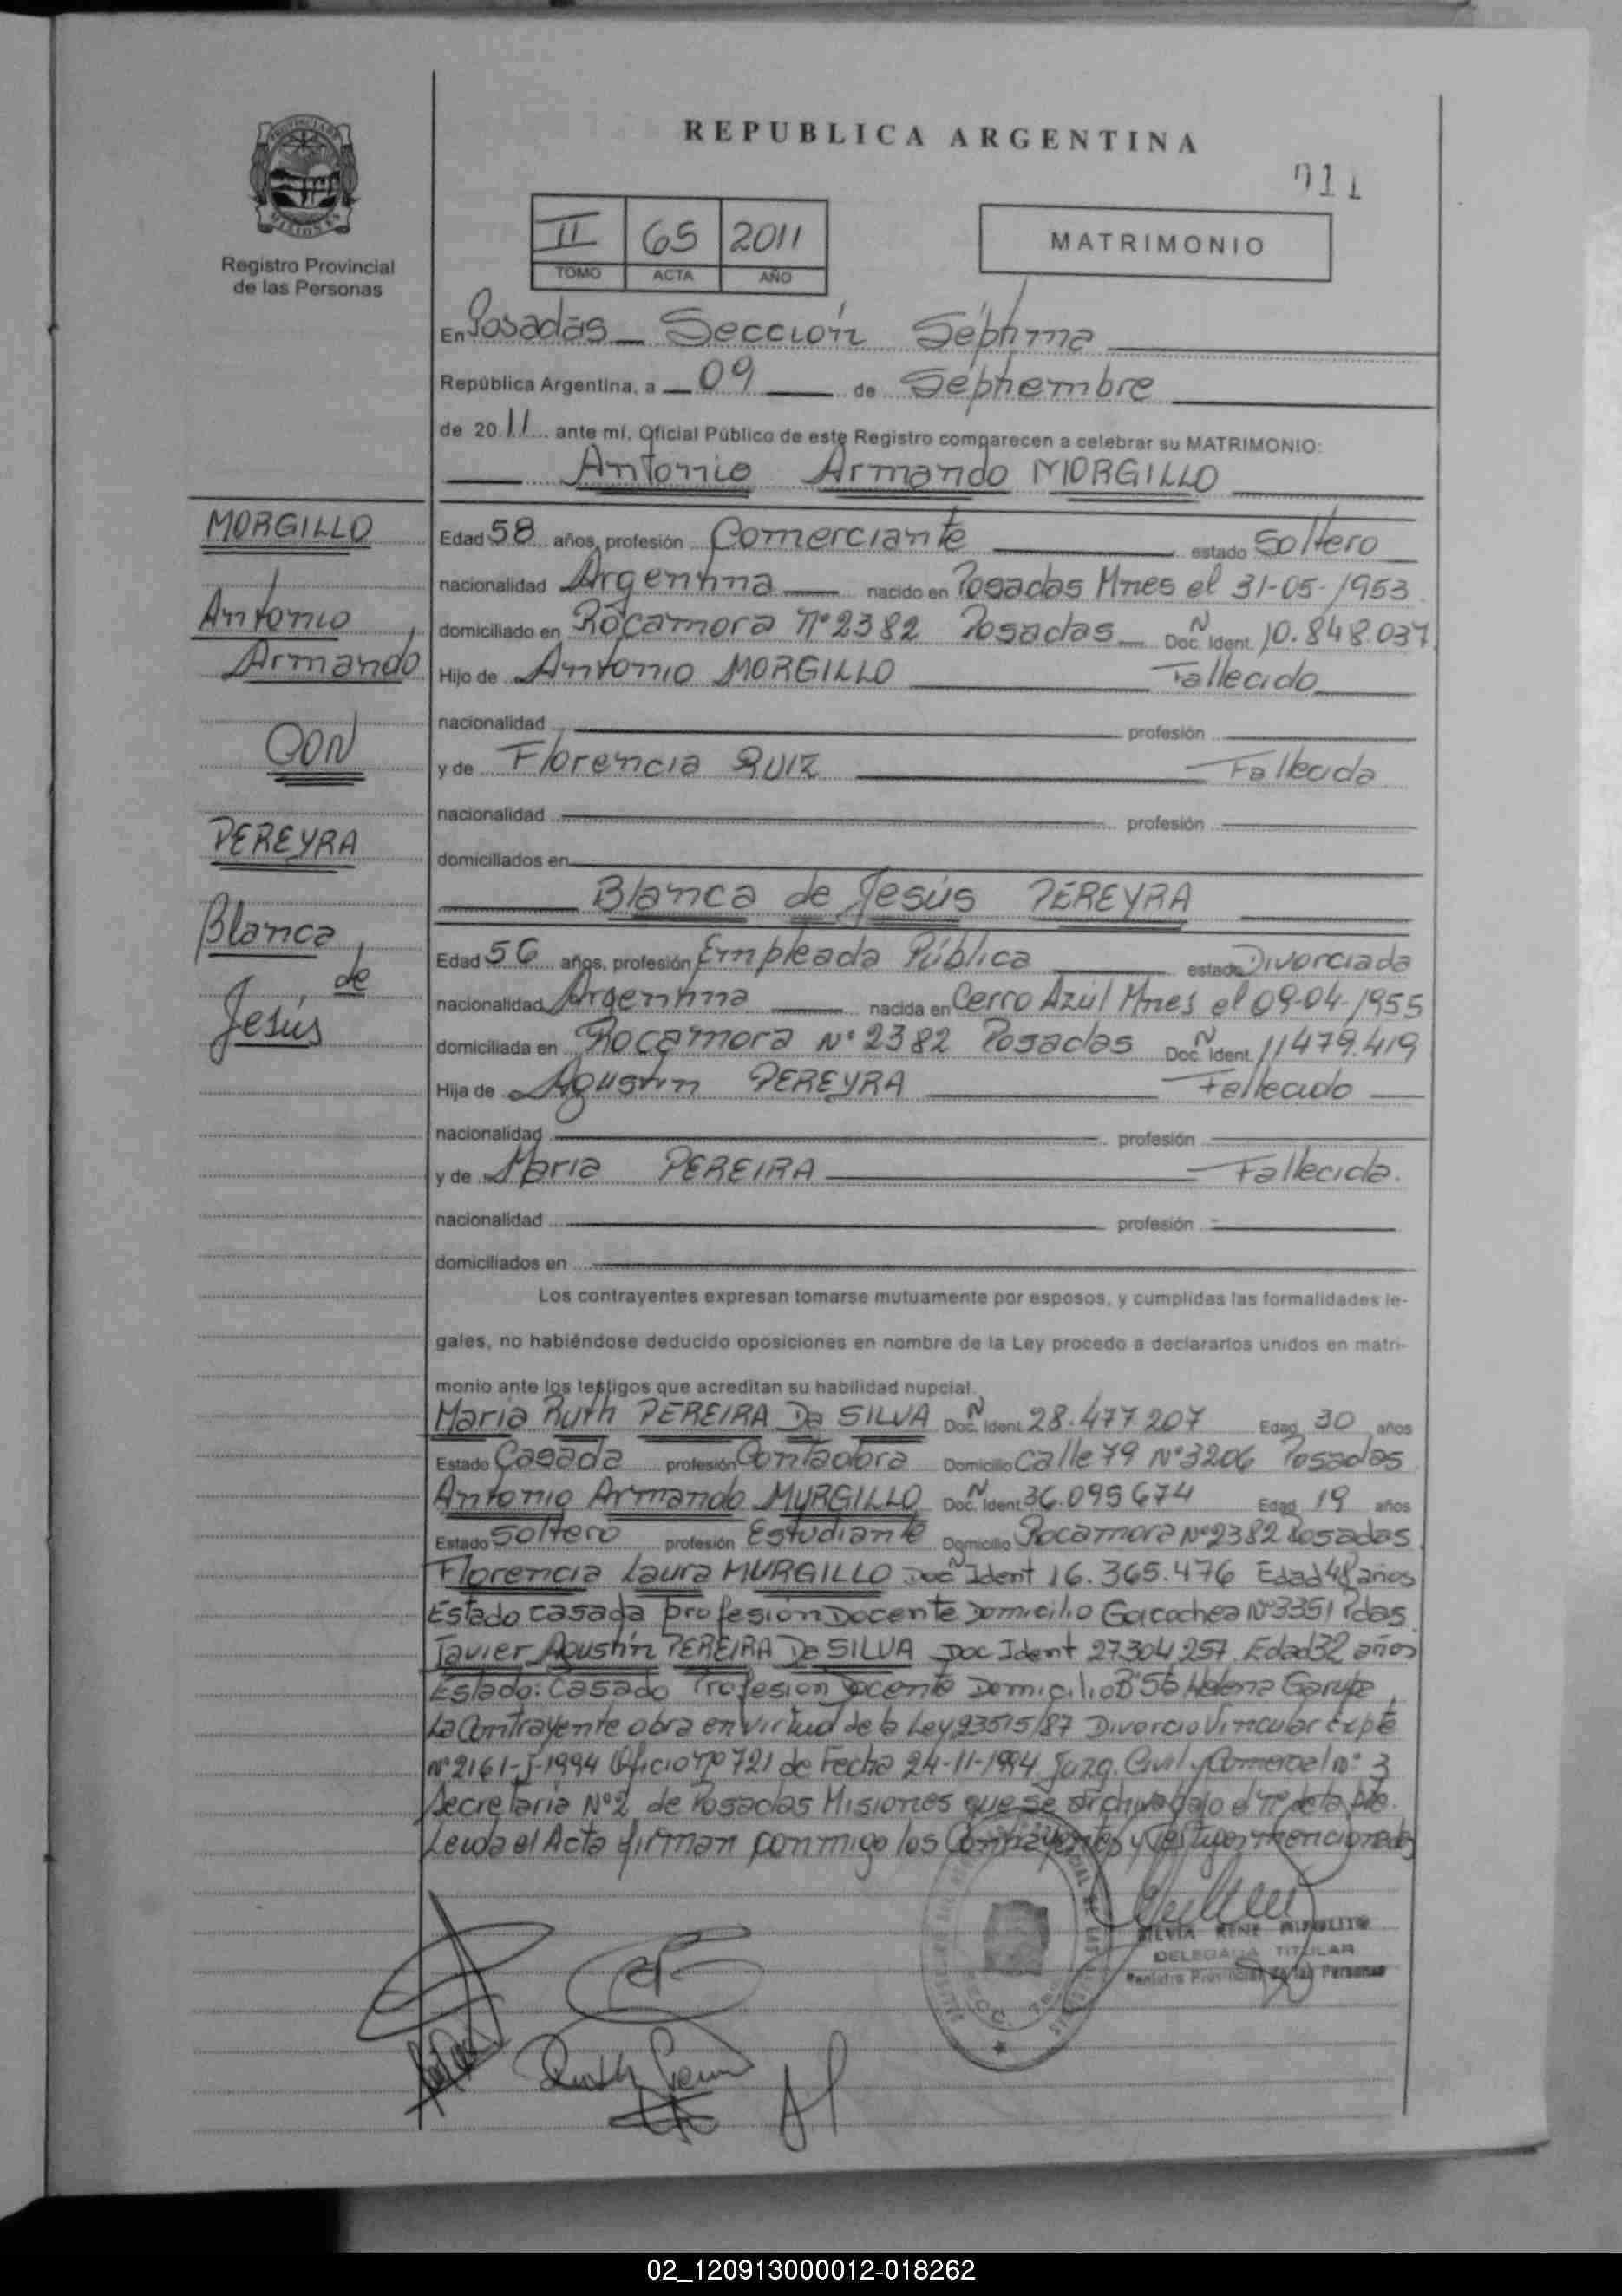 REPUBLICA ARGENTINA
011
PROVINCIA DE
MISIONES
Registro Provincial
de las Personas
II 65 2011
TOMO ACTA AÑO
MATRIMONIO
En Posadas Sección Séptima
República Argentina, a 09 de Septiembre
de 2011 ante mí, Oficial Público de este Registro comparecen a celebrar su MATRIMONIO:
Antonio Armando MORGILLO
MORGILLO
Antonio
Armando
CON
PEREYRA
Blanca
de
Jesús
Edad 58 años, profesión Comerciante estado Soltero
nacionalidad Argentina nacido en Posadas Mnes el 31-05-1953
domiciliado en Rocamora Nº 2382 Posadas Doc. Ident. N 10.848.037
Hijo de Antonio MORGILLO Fallecido
nacionalidad profesión
y de Florencia RUIZ Fallecida
nacionalidad profesión
domiciliados en
Blanca de Jesús PEREYRA
Edad 56 años, profesión Empleada Pública estado Divorciada
nacionalidad Argentina nacida en Cerro Azúl Mnes el 09-04-1955
domiciliada en Rocamora Nº 2382 Posadas Doc. Ident. N 11479.419
Hija de Agustín PEREYRA Fallecido
nacionalidad profesión
y de Maria PEREIRA Fallecida.
nacionalidad profesión
domiciliados en
Los contrayentes expresan tomarse mutuamente por esposos, y cumplidas las formalidades le-
gales, no habiéndose deducido oposiciones en nombre de la Ley procedo a declararlos unidos en matri-
monio ante los testigos que acreditan su habilidad nupcial.
Maria Ruth PEREIRA Da SILVA Doc. Ident. N 28.477.207 Edad 30 años
Estado Casada profesión Contadora Domicilio Calle 79 Nº 3206 Posadas
Antonio Armando MURGILLO Doc. Ident. N 36.095674 Edad 19 años
Estado Soltero profesión Estudiante Domicilio Rocamora Nº 2382 Posadas
Florencia Laura MURGILLO Doc N Ident 16.365.476 Edad 48 años
Estado casada profesión Docente Domicilio Gocochea Nº 3351 Pdas
Javier Agustín PEREIRA Da SILVA Doc Ident 27.304.257. Edad 32 años
Estado: Casado Profesión Docente Domicilio Bº 56 Helena Garupe
La Contrayente obra en virtud de la Ley 23515/87 Divorcio Vincular Expte
Nº 2161-J-1994 Oficio nº 721 de Fecha 24-11-1994 Juzg. Civil y Comercial nº: 3
Secretaría Nº 2 de Posadas Misiones que se archiva bajo el nº de la pte.
Leída el Acta firman conmigo los Contrayentes y Testigos mencionados
SILVIA RENE HIPOLITO
DELEGADA TITULAR
Registro Provincial de las Personas
02_120913000012-018262